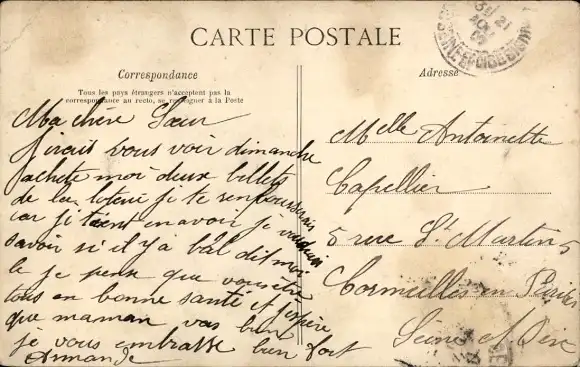 CARTE POSTALE
Correspondance
Tous les pays étrangers n'acceptent pas la
correspondance au recto, se renseigner à la Poste
Ma chère Sœur
J'irais vous voir dimanche
achète moi deux billets
de la loterie je te remboursserais
car je tient en avoir je voudrais
savoir si il y a bal dit moi
le je pense que vous ête
tous en bonne santé et j'espère
que maman vas bien
je vous embrasse bien fort
Armande
Adresse
Melle Antoinette
Capellier
5 rue St Martin 5
Cormeilles en Parisis
Seine et Oise